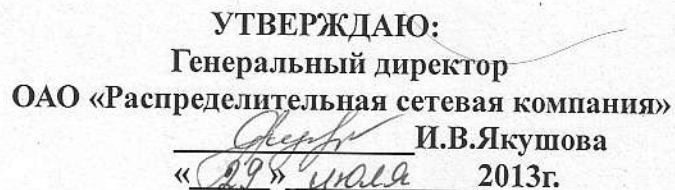 УТВЕРЖДАЮ:
Генеральный директор
ОАО «Распределительная сетевая компания»
И.В.Якушова
«29» июля 2013г.